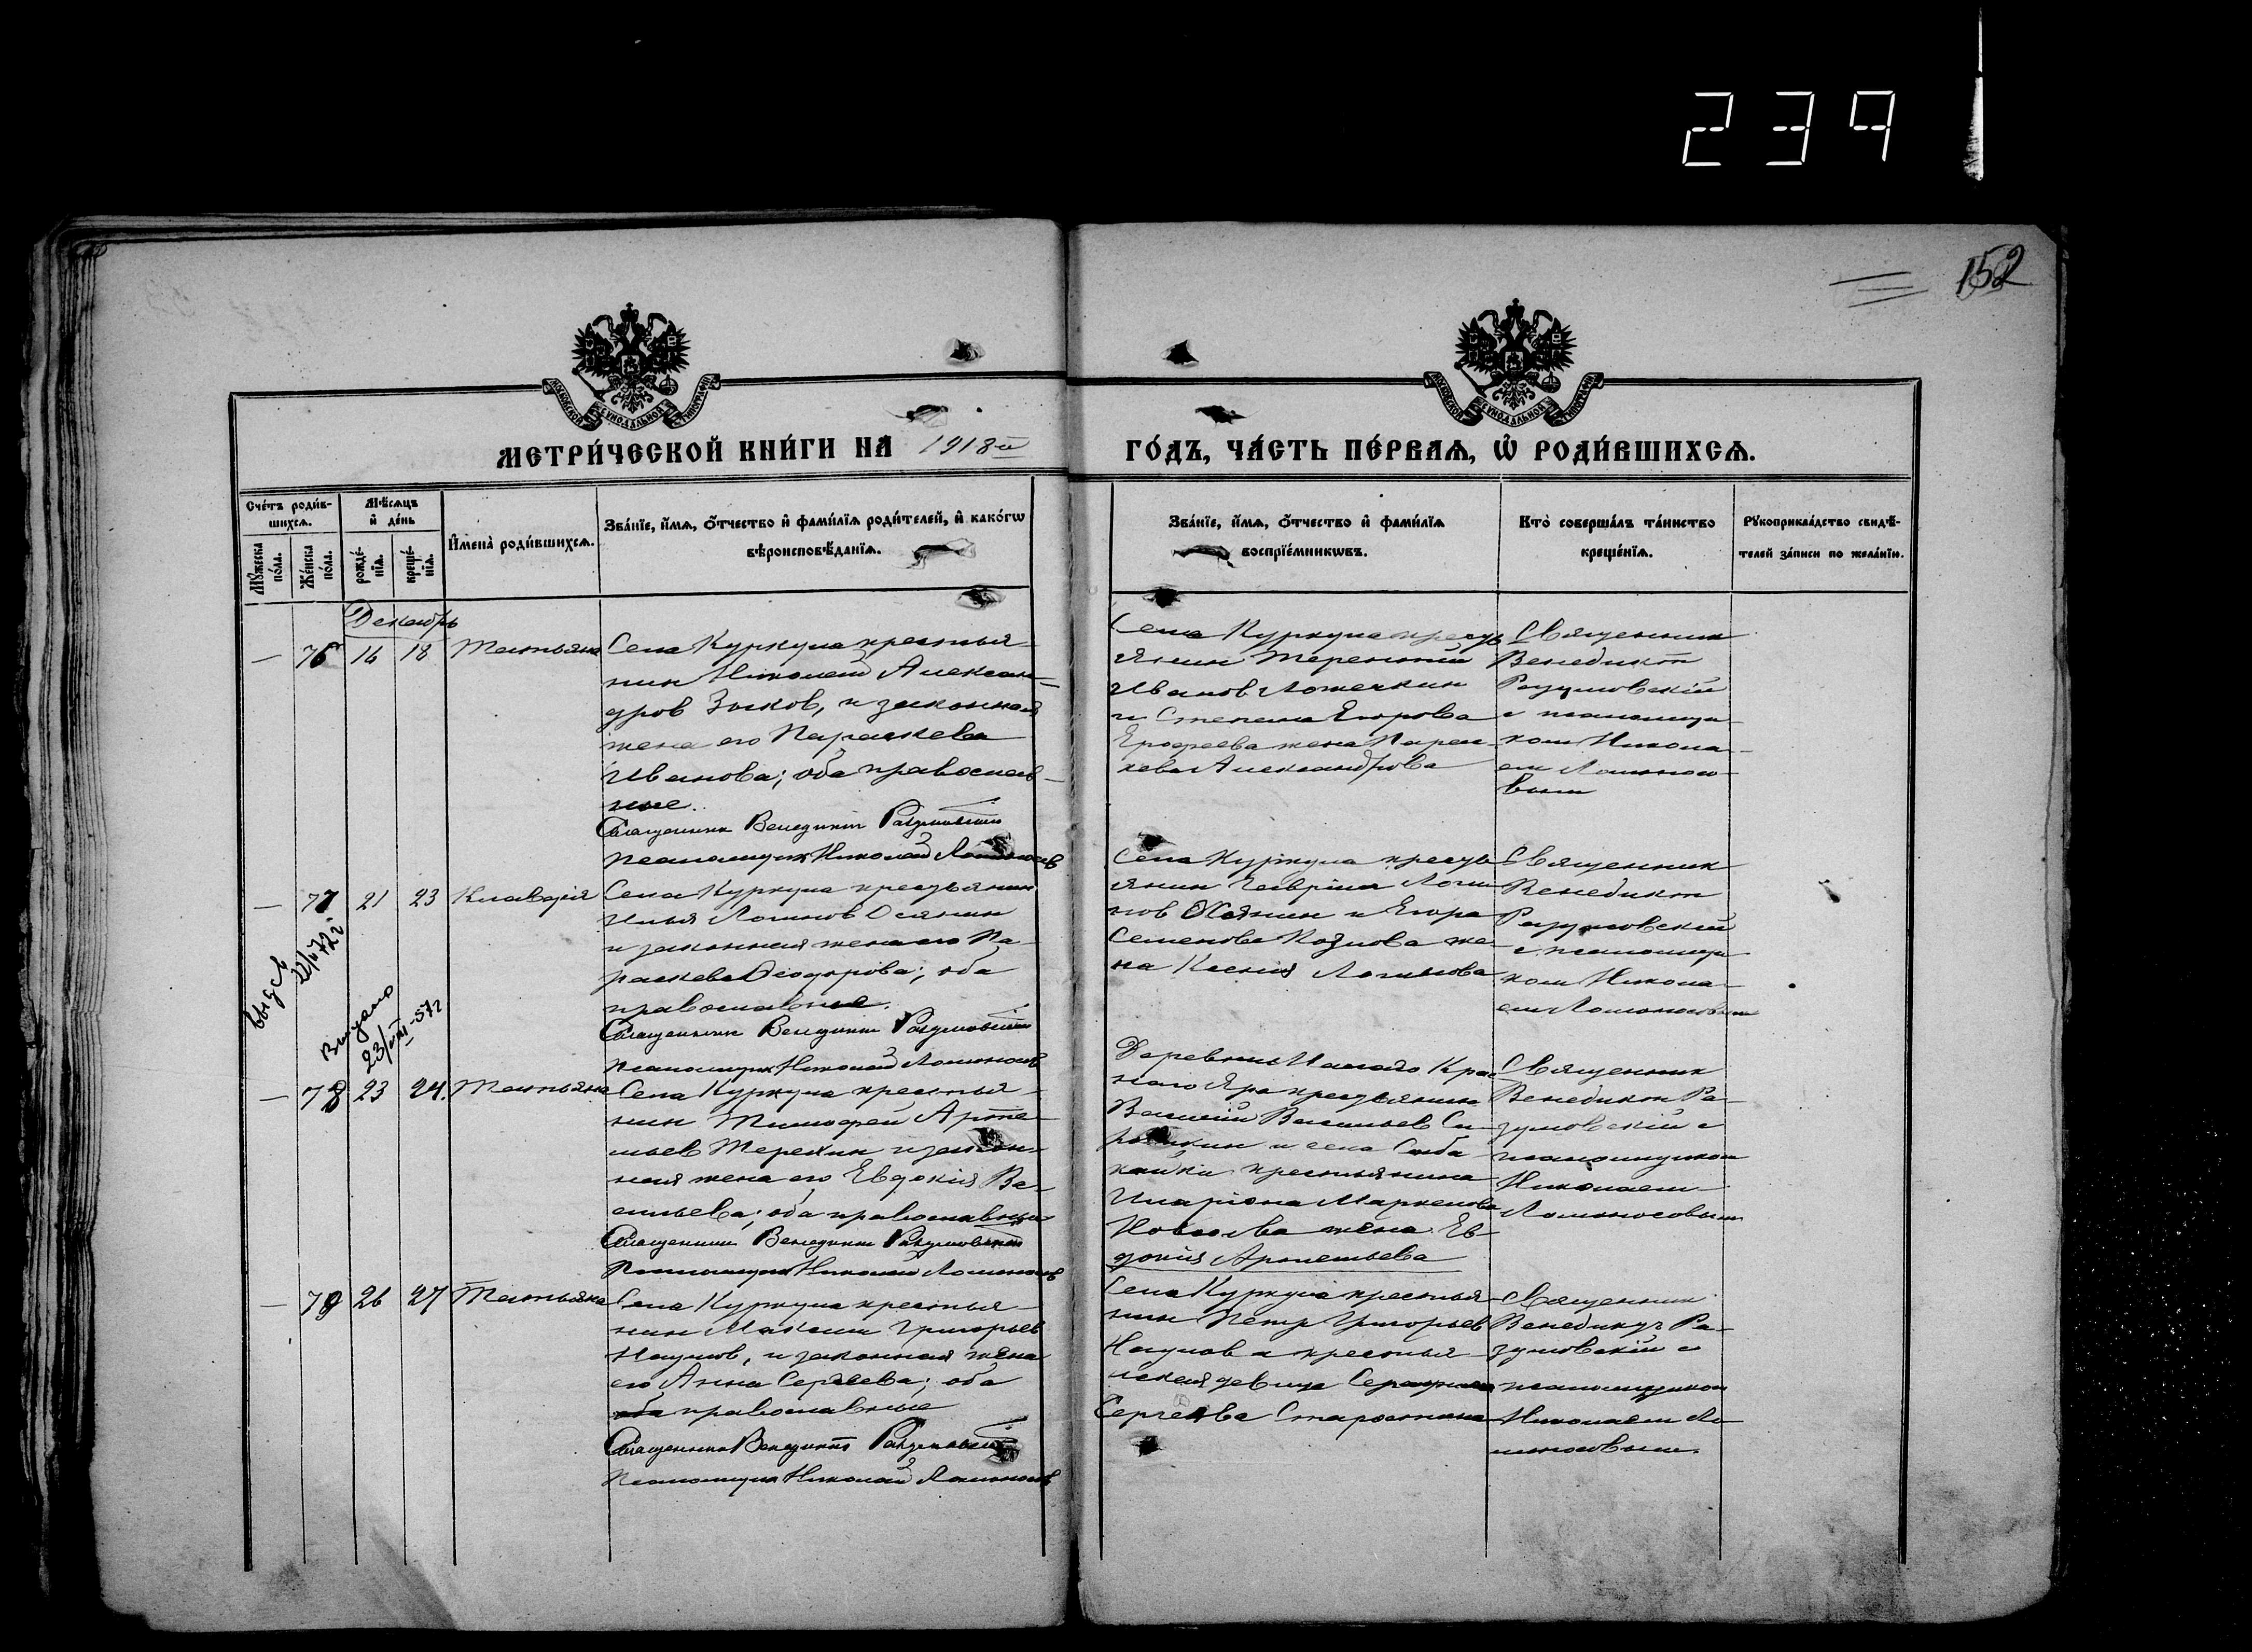 239
152
МЕТРИ́ЧЕСКОЙ КНИ́ГИ НА 1918й ГО́ДЪ, ЧА́СТЬ ПЕ́РВАѦ, Ѡ҆ РОДИ́ВШИХСѦ.
Сче́тъ роди́в-
шихсѧ.
Мꙋ́жеска по́ла.
Же́нска по́ла.
Мѣ́сѧцъ
и҆ де́нь
рожде́-
нїѧ.
креще́-
нїѧ.
И҆мена̀ роди́вшихсѧ.
Зва́нїе, и҆́мѧ, ѻ҆́тчество и҆ фами́лїѧ роди́телей, и҆ како́гѡ
вѣроисповѣ́данїѧ.
Зва́нїе, и҆́мѧ, ѻ҆́тчество и҆ фами́лїѧ
воспрїе́мникѡвъ.
Кто̀ соверша́лъ та́инство
креще́нїѧ.
Рꙋкоприкла́дство свидѣ́-
телей за́писи по жела́нїю.
Декабрь
— 76 16 18 Татьяна
Села Куркула крестья-
нин Николай Алексан-
дров Зыков, и законная
жена его Параскева
Иванова; оба православ-
ные.
Священник Венедикт Разумовский
Псаломщик Николай Ломоносов
Села Куркула кресть
янин Терентий
Иванов Ложечкин
и Степана Егорова
Ерофеева жена Парас-
кева Александрова
Священник
Венедикт
Разумовскій
с псаломщи-
ком Никола-
ем Ломоносо-
вым
— 77 21 23 Клавдія
Села Куркула крестьянин
Илья Логинов Осянин
и законная жена его Па-
раскева Ѳеодорова; оба
православные.
Священник Венедикт Разумовский
Псаломщик Николай Ломоносов
Села Куркула кресть
янин Гавріил Логи-
нов Осянин и Егора
Семенова Козлова же-
на Ксения Логинова
Священник
Венедикт
Разумовский
с псаломщи-
ком Никола-
ем Ломоносовым
Выдано
23/VIII-57г
— 78 23 24. Татьяна
Села Куркула крестья-
нин Тимофей Арте-
мьев Терехин и закон-
ная жена его Евдокія Ва-
сильева; оба православные
Священник Венедикт Разумовский
Псаломщик Николай Ломоносов
Деревни Малаго Крас
наго Яра крестьянин
Василій Васильев
и села
крестьянина
Иларіона Маркелова
жена Ев-
докія Артемьева
Священник
Венедикт Ра-
зумовскій с
псаломщиком
Николаем
Ломоносовым
— 79 26 27 Татьяна
Села Куркула крестья-
нин Максим Григорьев
Наумов, и законная жена
его Анна Сергеева; оба
православные
Священник Венедикт Разумовский
Псаломщик Николай Ломоносов
Села Куркула крестья
нин Петр Григорьев
Наумов и крестья-
нская девица Серафима
Сергеева Старостина
Священник
Венедикт Ра-
зумовскій с
псаломщиком
Николаем Ло-
моносовым.